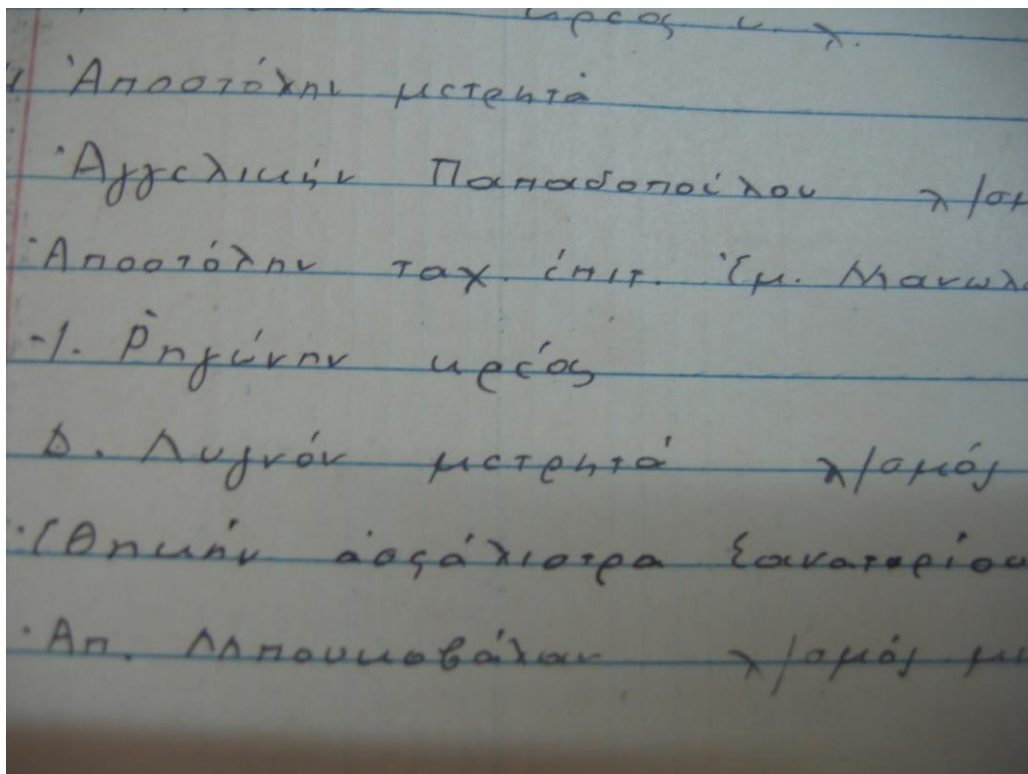 κρέος κ. λ.
Ἀποστόλην μετρητά
Ἀγγελικήν Παπαδοπούλου λ/σμ
Ἀποστόλην ταχ. ἐπιτ. Ἐμ. Μανωλ
-/. Ρηγίνην κρέος
Δ. Λυγνόν μετρητά λ/σμός
Ἐθνικήν ἀσφάλιστρα Σανατορίου
Ἀπ. Μπουκοβάλαν λ/σμός